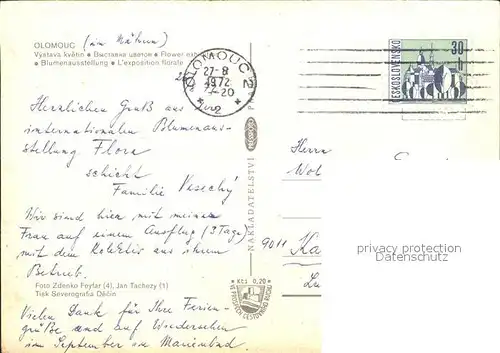 OLOMOUC (in Mähren)
Výstava květin • Выставка цветов • Flower exh
• Blumenausstellung • L'exposition florale
OLOMOUC 2
27-8
1972
-20
2
ČESKOSLOVENSKO
30
h
Herzlichen Gruß aus der
internationalen Blumenaus-
stellung Flora
schickt
Familie Veselý
Wir sind hier mit meiner
Frau auf einem Ausflug (3 Tage)
mit dem Kolektiv aus ihrem
Betrieb.
Foto Zdenko Feyfar (4), Jan Tachezy (1)
Tisk Severografia Děčín
Vielen Dank für Ihre Ferien-
grüße und auf Wiedersehen
im September in Marienbad
NAKLADATELSTVÍ
Kčs 0,20
Herrn
Wol
9011 Ka
privacy protection
Datenschutz